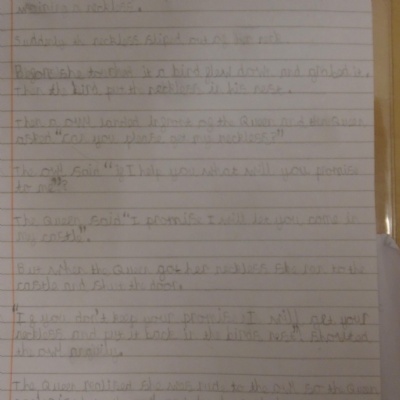 necklace.
Suddenly the necklace slipped out of her neck.
Before she it a bird flew down and it.
Then the bird put the necklace in his nest.
Then a owl landed in front of the Queen and the Queen
asked "Can you please get my necklace?"
The owl said "If I help you what will you promise
to me"?
The Queen said "I promise I will let you come in
my castle".
But when the Queen got her necklace she ran to the
castle and shut the door.
"If you don't keep your promise I will get your
necklace and put it back in the birds nest" shouted
the owl angrily.
The Queen realised she was rude to the owl so the Queen